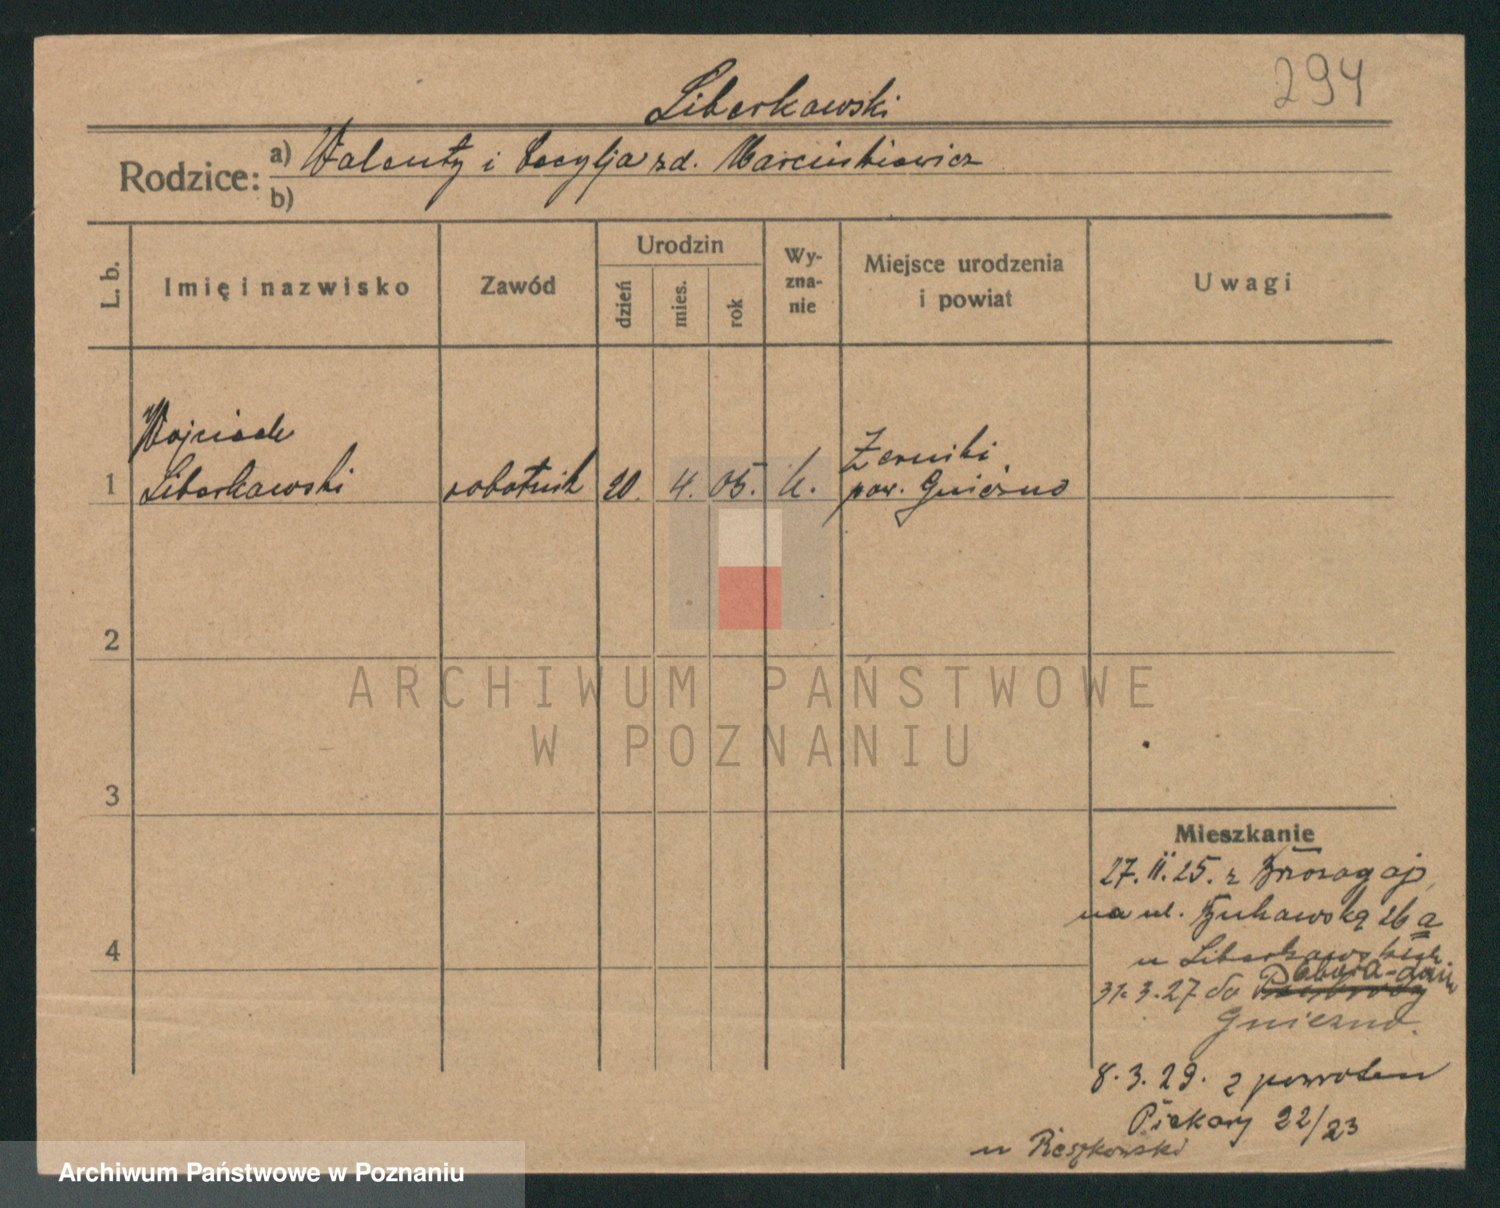 294
Liberkowski
Rodzice: a) Walenty i Cecylja zd. Marcinkiewicz
b)
L. b.
Imię i nazwisko
Zawód
Urodzin
dzień
mies.
rok
Wy-
zna-
nie
Miejsce urodzenia
i powiat
Uwagi
1
Wojciech
Liberkowski
robotnik
20.
4.
05.
k.
Żerniki
pow. Gniezno
2
3
4
Mieszkanie
27. II. 25. z
na ul. Bukowską 26 a
u Liberkowskich
31. 3. 27 do
Gniezno.
8. 3. 29. z powrotem
Piekary 22/23
u
ARCHIWUM PAŃSTWOWE
W POZNANIU
Archiwum Państwowe w Poznaniu